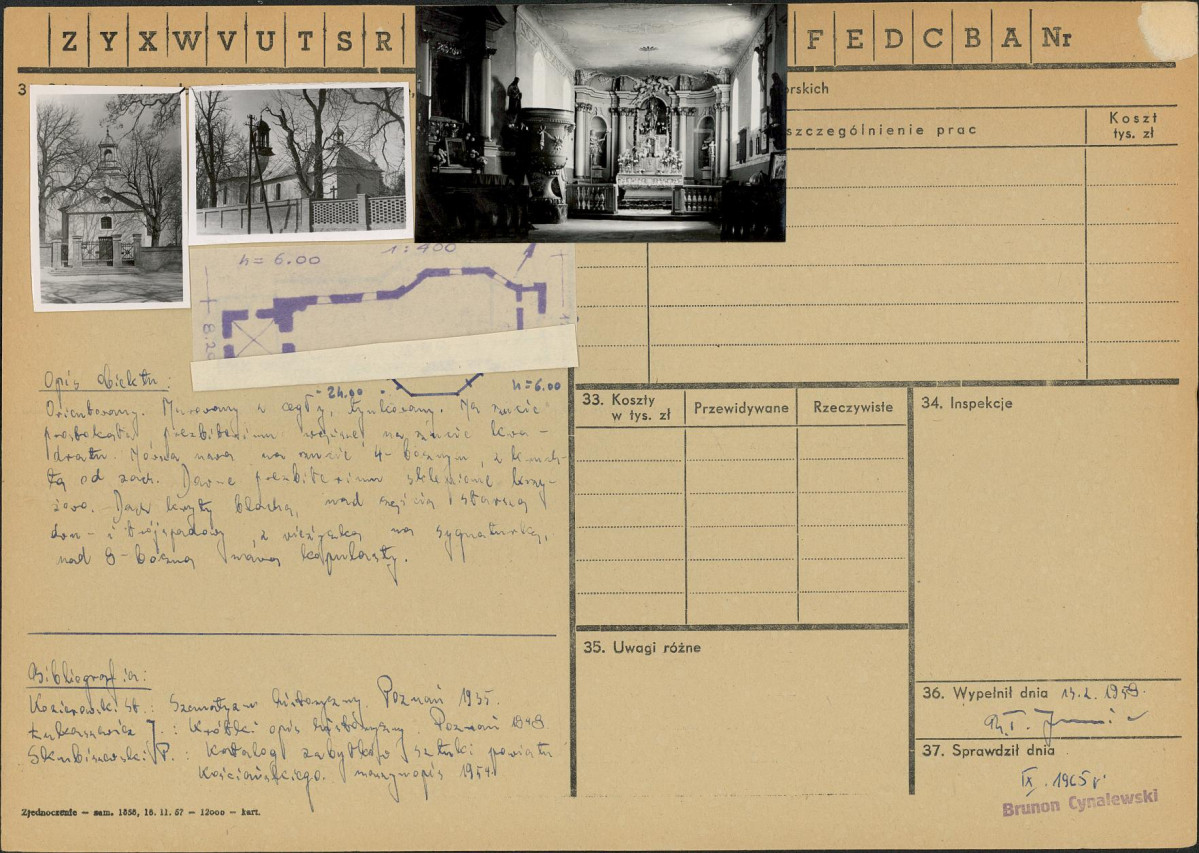 Z Y X W V U T S R F E D C B A Nr
3
rskich
szczególnienie prac
Koszt
tys. zł
h = 6.00
1:400
8.2
24.00
h=6.00
Opis obiektu:
Orientowany. Murowany z cegły, tynkowany. Na rzucie
prostokąta, prezbiterium węższe na rzucie kwa-
dratu. nawa na rzucie 8-bocznym, z
tą od zach. Dawne prezbiterium sklepione krzy-
żowo. Dach kryty blachą, nad częścią starszą
dwu- i trójspadowy, z wieżyczką na sygnaturkę,
nad 8-boczną nawą kopulasty.
Bibliografia:
Kozierowski St.: Szematyzm historyczny. Poznań 1935.
Łukaszewicz J.: Krótki opis historyczny. Poznań
Skubiszewski P.: Katalog zabytków sztuki powiatu
Kościańskiego. maszynopis 1954.
Zjednoczenie — zam. 1858, 16. 11. 67 — 12000 — kart.
33. Koszty
w tys. zł
Przewidywane
Rzeczywiste
34. Inspekcje
35. Uwagi różne
36. Wypełnił dnia 1959.
37. Sprawdził dnia
IX. 1965 r.
Brunon Cynalewski